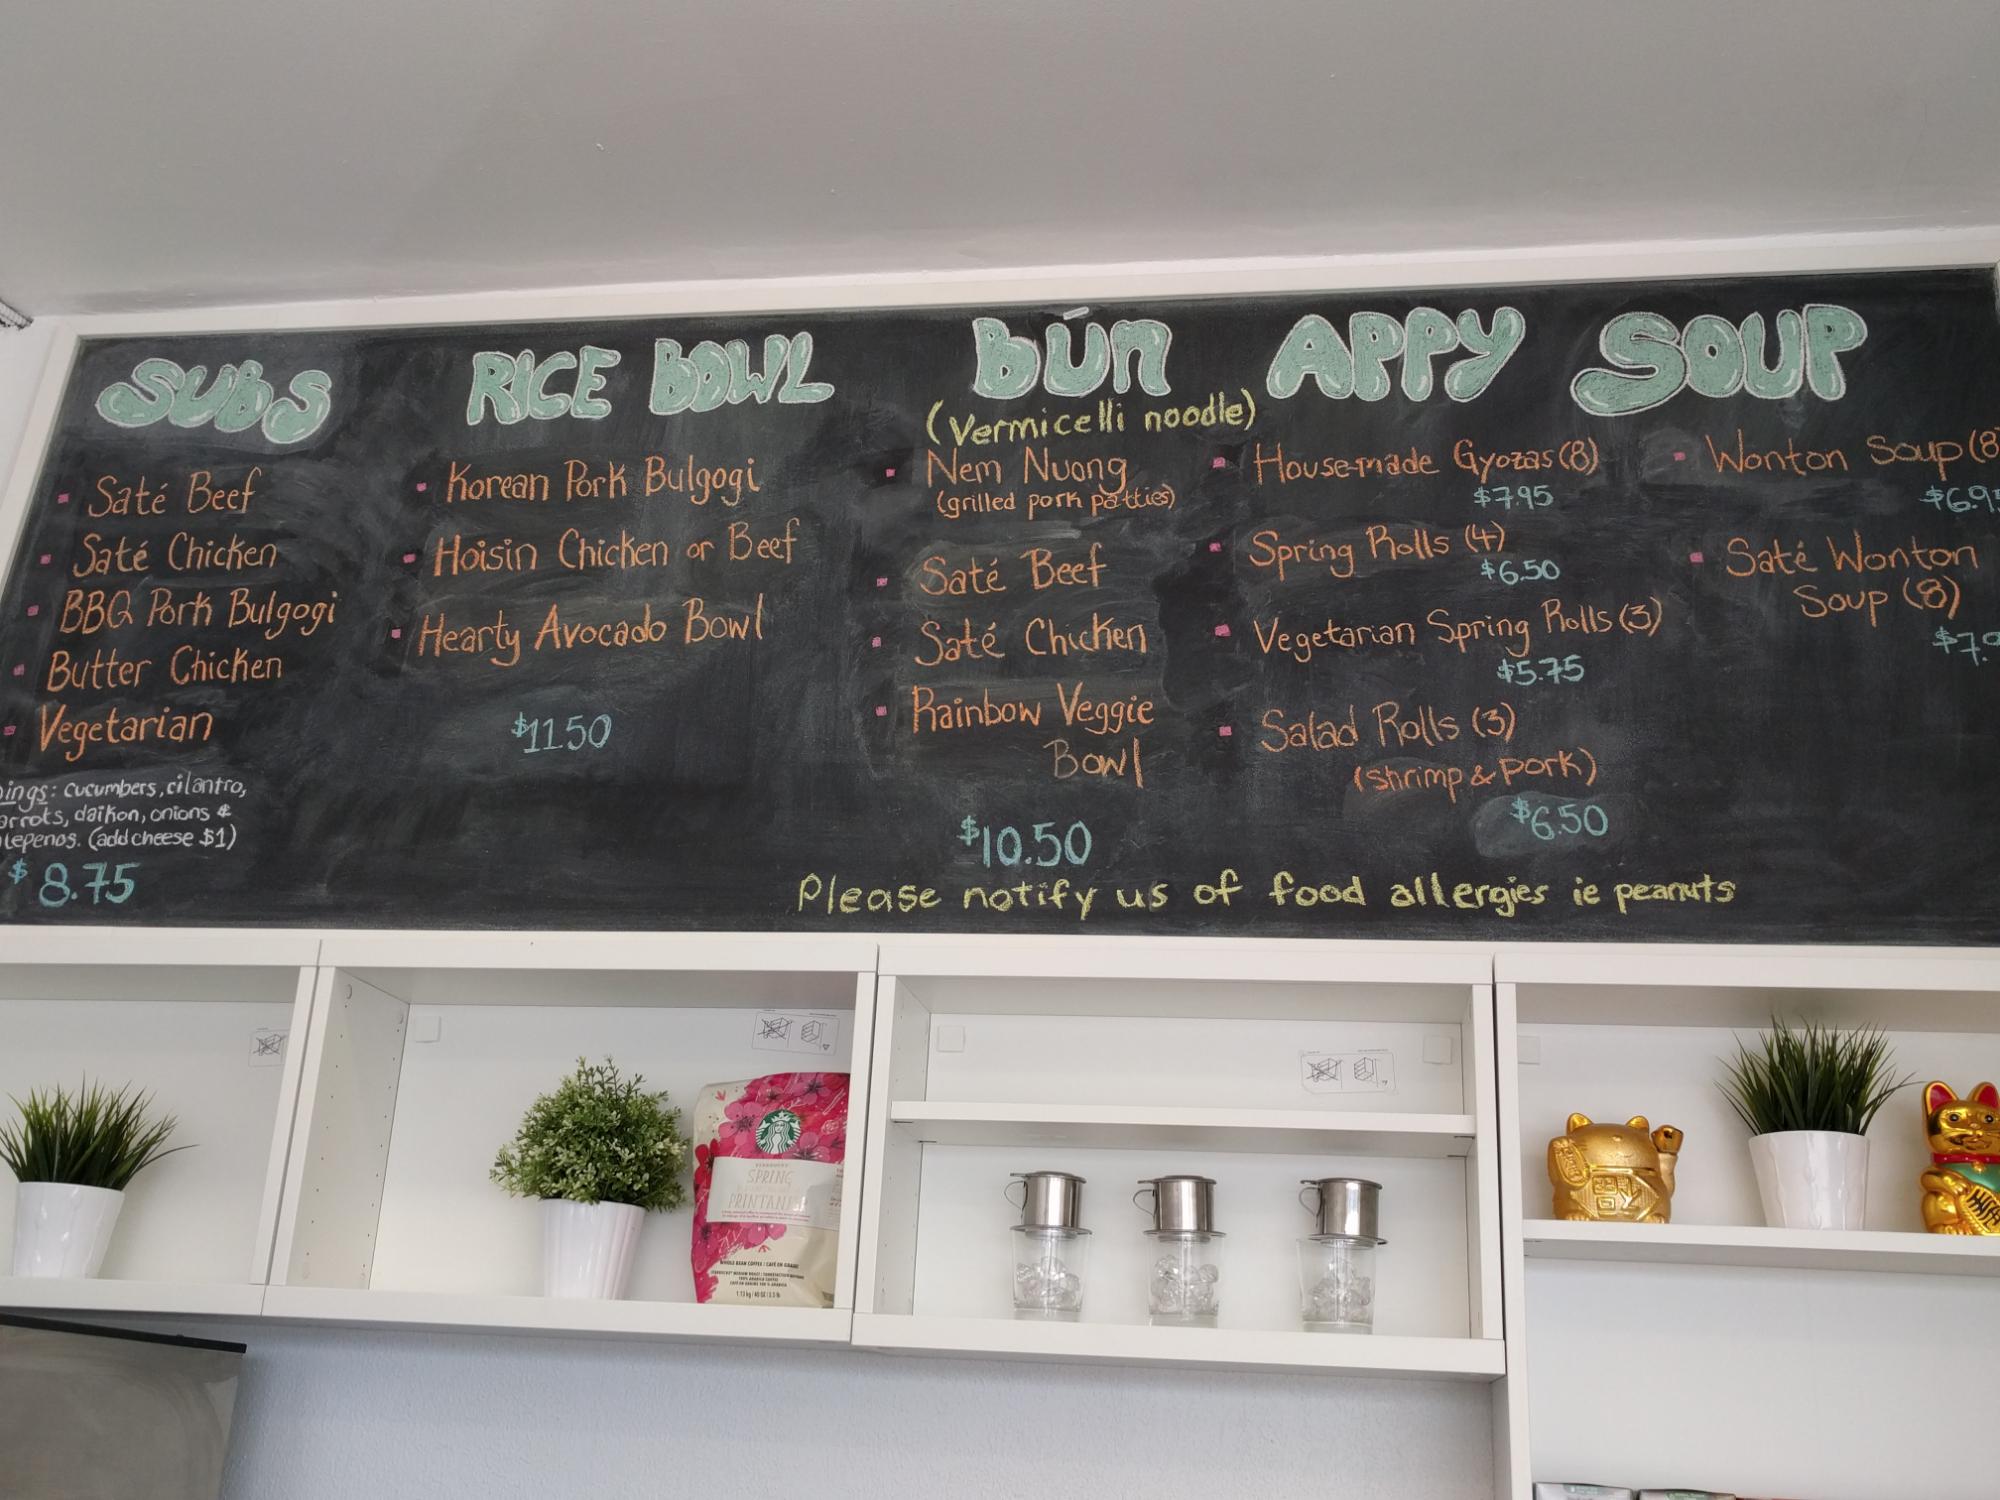 SUBS
Saté Beef
Saté Chicken
BBQ Pork Bulgogi
Butter Chicken
Vegetarian
cucumbers, cilantro,
daikon, onions &
(add cheese $1)
$8.75
RICE BOWL
Korean Pork Bulgogi
Hoisin Chicken or Beef
Hearty Avocado Bowl
$11.50
bun
(Vermicelli noodle)
Nem Nuong
(grilled pork patties)
Saté Beef
Saté Chicken
Rainbow Veggie
Bowl
$10.50
APPY
House-made Gyozas (8)
$7.95
Spring Rolls (4)
$6.50
Vegetarian Spring Rolls (3)
$5.75
Salad Rolls (3)
(shrimp & pork)
$6.50
SOUP
Wonton Soup (8)
$6.95
Saté Wonton
Soup (8)
Please notify us of food allergies ie peanuts
STARBUCKS
SPRING
WHOLE BEAN COFFEE / CAFÉ EN GRAINS
1.13 kg / 40 OZ / 2.5 lb